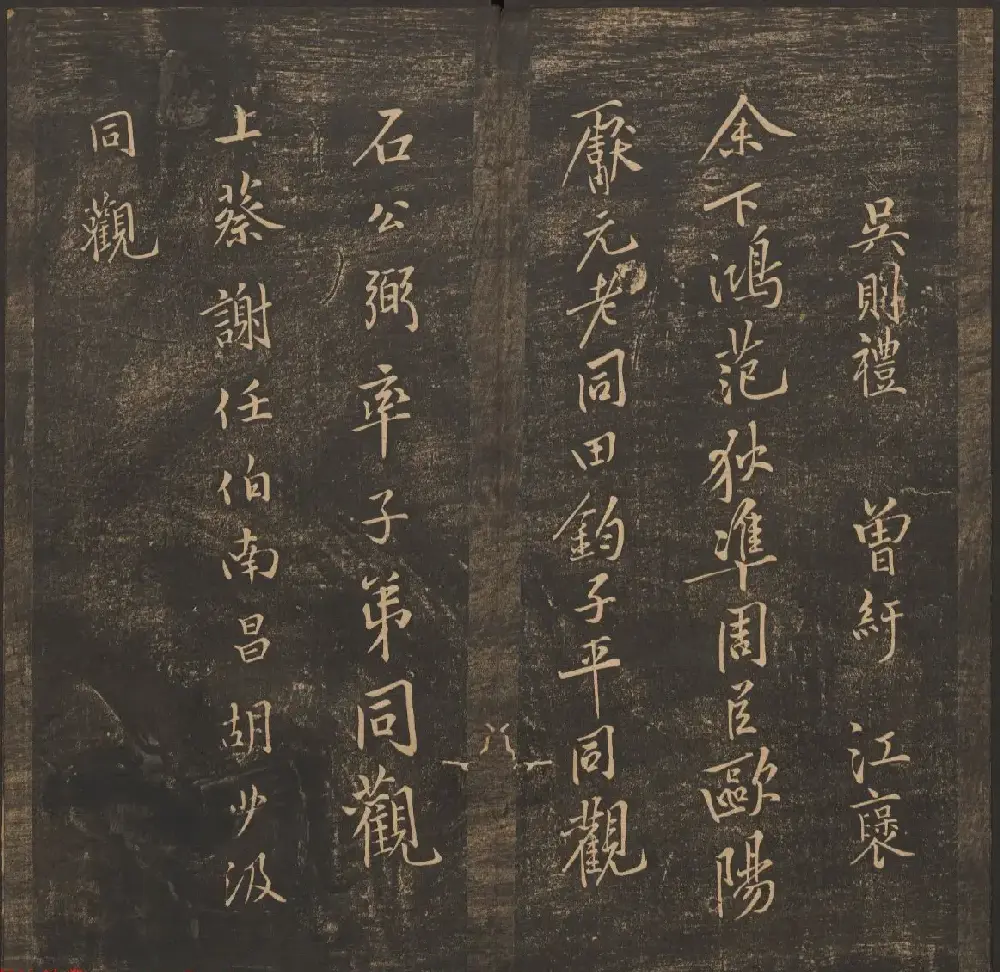 吳則禮 曾紆 江褒
余下鴻范狄準周臣歐陽
獻元老同田鈞子平同觀
石公弼率子弟同觀
上蔡謝任伯南昌胡少汲
同觀